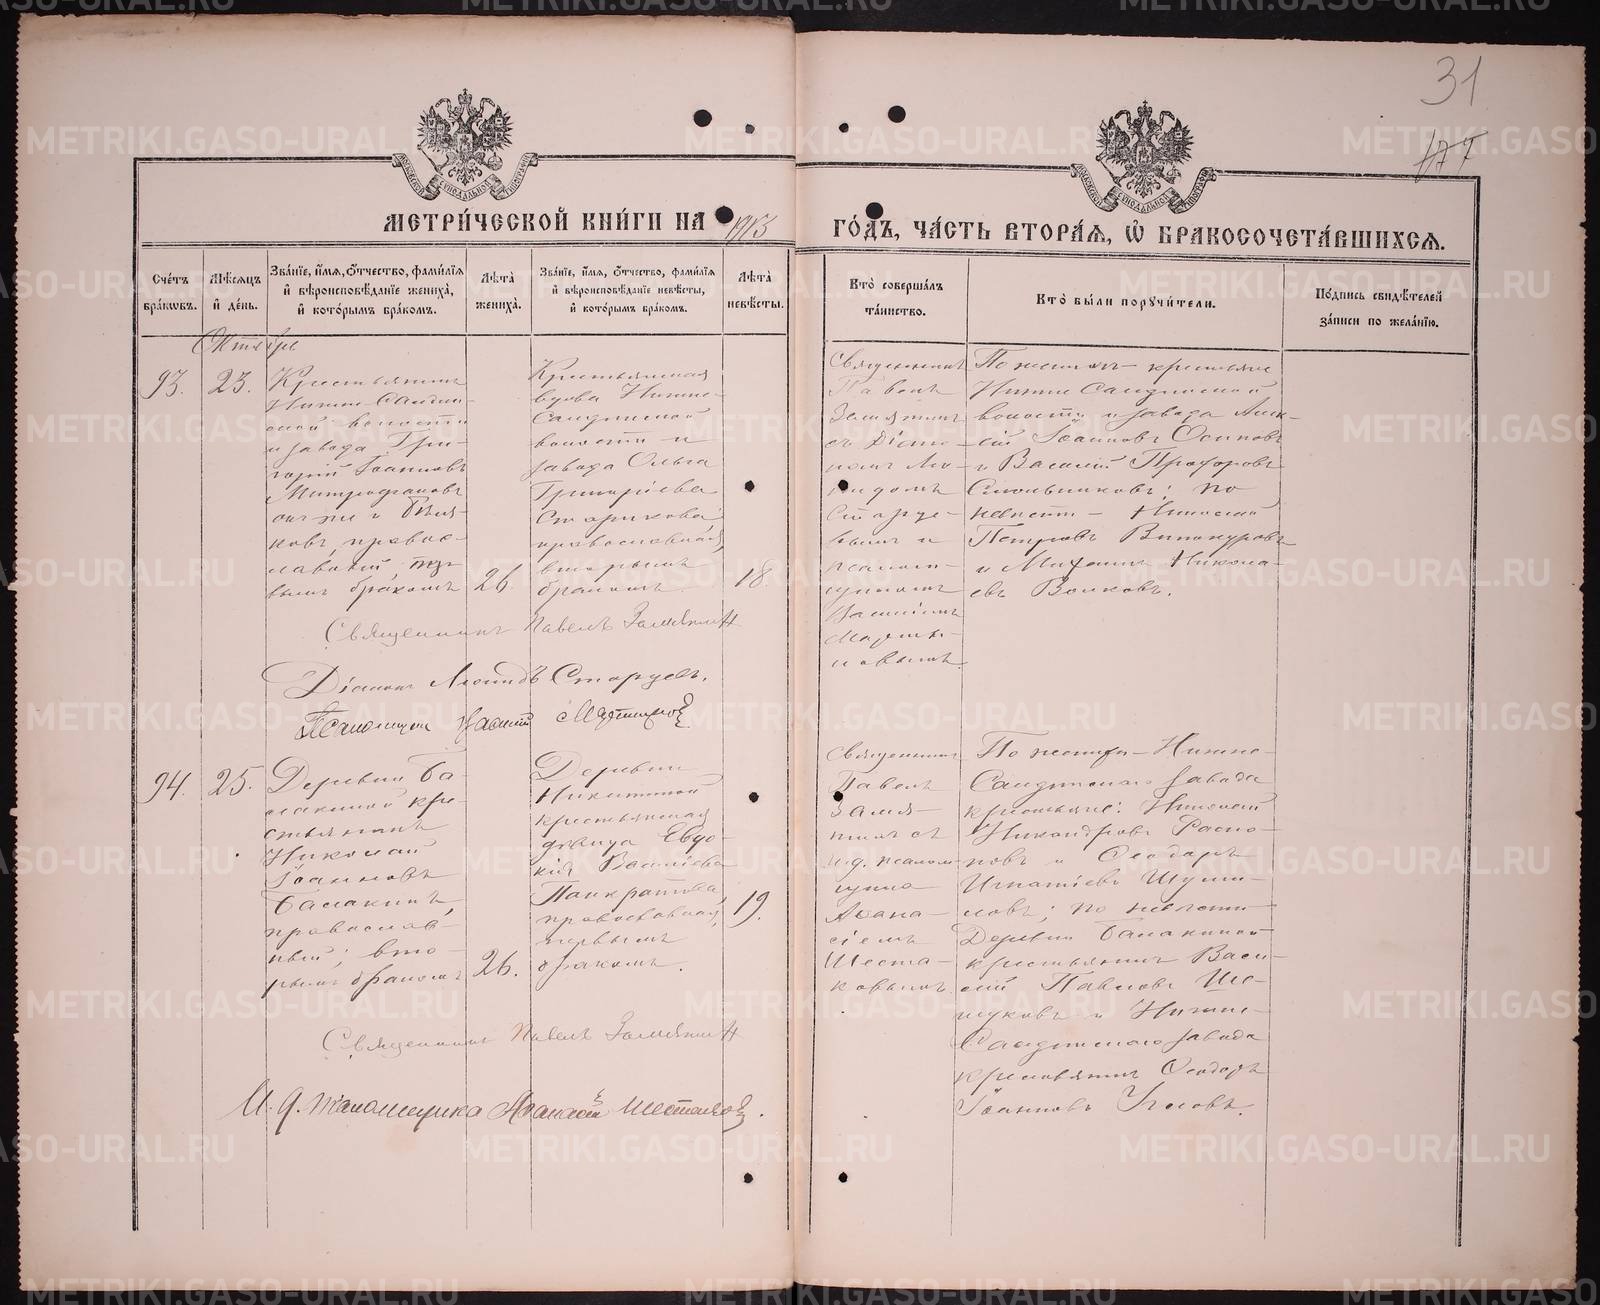 31
МЕТРИ́ЧЕСКОЙ КНИ́ГИ НА 1913
ГО́ДЪ, ЧА́СТЬ ВТОРА́Я, Ѡ҆ БРАКОСОЧЕТА́ВШИХСЯ.
Сче́тъ бра́кѡвъ.
Мѣ́сяцъ и҆ де́нь.
Зва́нїе, и҆́мя, ѻ҆́тчество, фами́лїя
и҆ вѣроисповѣ́данїе жениха̀,
и҆ кото́рымъ бра́комъ.
Лѣ́та жениха̀.
Зва́нїе, и҆́мя, ѻ҆́тчество, фами́лїя
и҆ вѣроисповѣ́данїе невѣ́сты,
и҆ кото́рымъ бра́комъ.
Лѣ́та невѣ́сты.
Кто̀ соверша́лъ
та́инство.
Кто̀ бы́ли порꙋчи́тели.
По́дпись свидѣ́телей
за́писи по жела́нїю.
Октябрь
93.
23.
Крестьянинъ
Нижне-Салдин-
ской волости
и завода Гри-
горій Іоанновъ
Митрофановъ
онъ же и Бѣля-
ковъ, правос-
лавный, пер-
вымъ бракомъ
26.
Крестьянская
вдова Нижне-
Салдинской
волости и
завода Ольга
Григоріева
Старикова
православная,
вторымъ
бракомъ
18.
Священникъ
Павелъ
Замятинъ
съ Діако-
номъ Ле-
нидомъ
Старце-
вымъ и
псалом-
щикомъ
Василіемъ
Марты-
новымъ.
По женихѣ – крестьяне
Нижне Салдинской
волости и завода Алек-
сѣй Іоанновъ Осиповъ
и Василій Прохоровъ
Смольниковъ; по
невѣстѣ – Николай
Петровъ Винокуровъ
и Михаилъ Никола-
евъ Волковъ.
Священникъ Павелъ Замятинъ
Діаконъ Леонидъ Старцевъ.
Псаломщикъ Василій Мартыновъ
94.
25.
Деревни Ба-
лакиной кре-
стьянинъ
Николай
Іоанновъ
Балакинъ,
православ-
ный; вто-
рымъ бракомъ
26.
Деревни
Никитиной
крестьянская
дѣвица Евдо-
кія Василіева
Панкратова,
православная,
первымъ
бракомъ.
19.
Священникъ
Павелъ
Замя-
тинъ съ
и.д. псалом-
щика
Аѳана-
сіемъ
Шеста-
ковымъ
По женихѣ – Нижне-
Салдинскаго завода
крестьяне: Николай
Никандровъ Распо-
повъ и Ѳеодоръ
Игнатіевъ Шуми-
ловъ; по невѣстѣ –
Деревни Балакиной
крестьянинъ Васи-
лій Павловъ Ше-
луковъ и Нижне-
Салдинскаго завода
крестьянинъ Ѳеодоръ
Іоанновъ Ускововъ.
Священникъ Павелъ Замятинъ
И. д. псаломщика Аѳанасій Шестаковъ.
METRIKI.GASO-URAL.RU